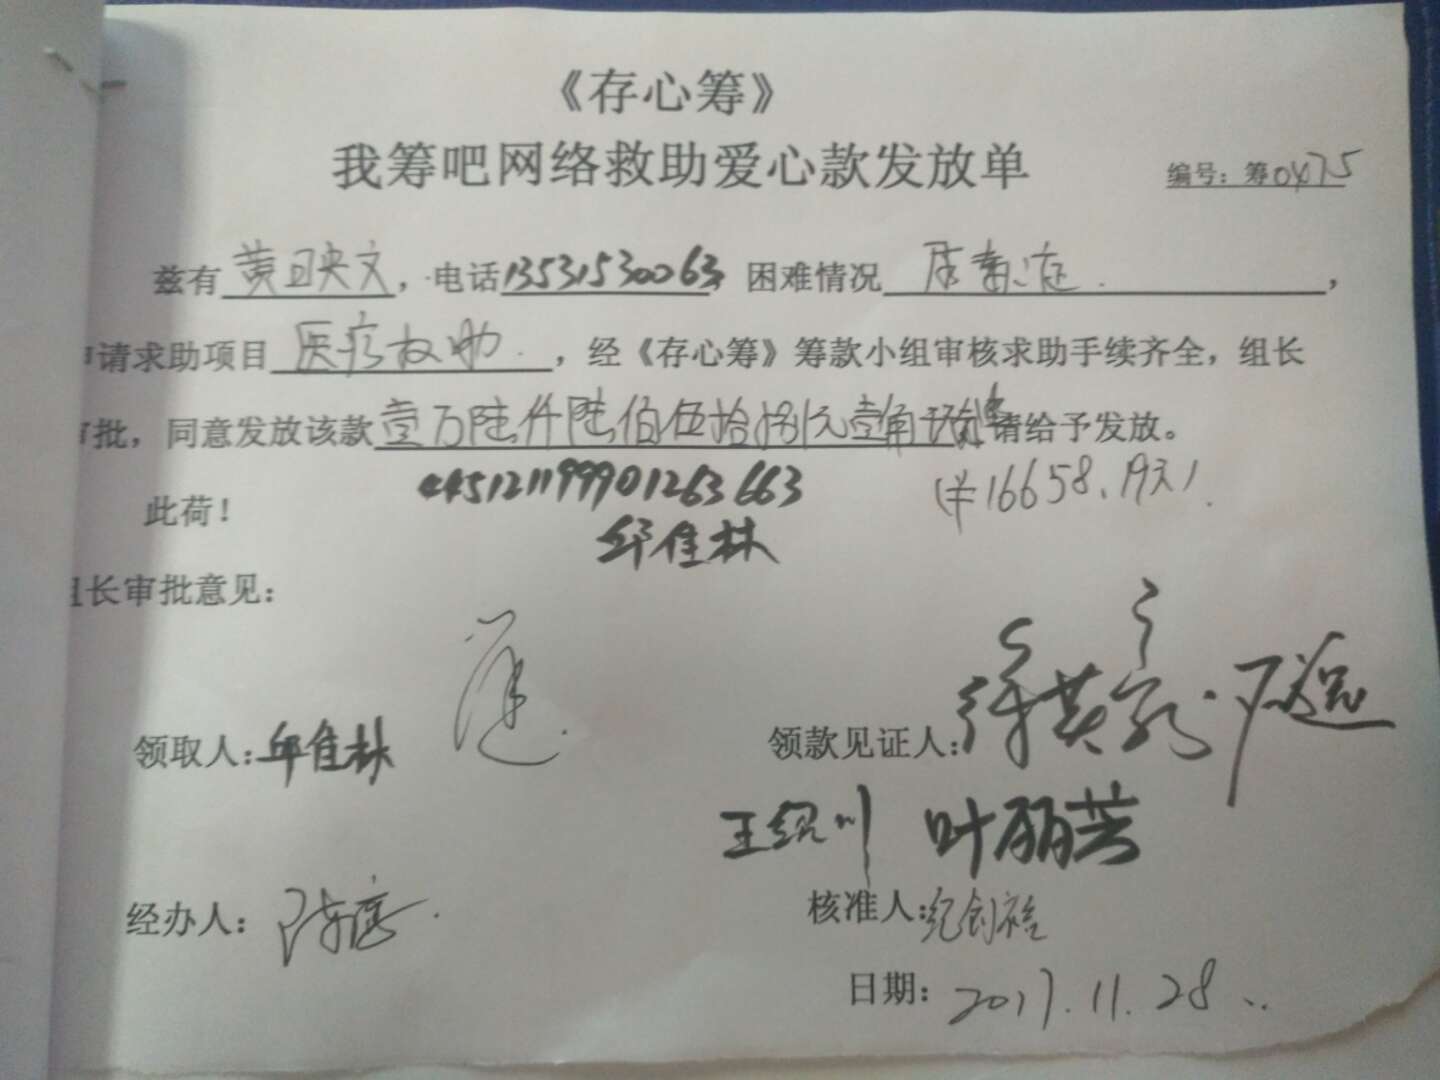 《存心筹》
我筹吧网络救助爱心款发放单
编号：筹0475
兹有黄映文，电话13531530063 困难情况，
请求助项目医疗救助.，经《存心筹》筹款小组审核求助手续齐全，组长
批，同意发放该款壹万陆仟陆佰伍拾捌元壹角请给予发放。
(¥16658.19元)
此荷！
445121199901263663
邱佳林
长审批意见：
领取人：邱佳林
领款见证人：
王绍川 叶丽芸
经办人：
核准人：
日期：2017.11.28